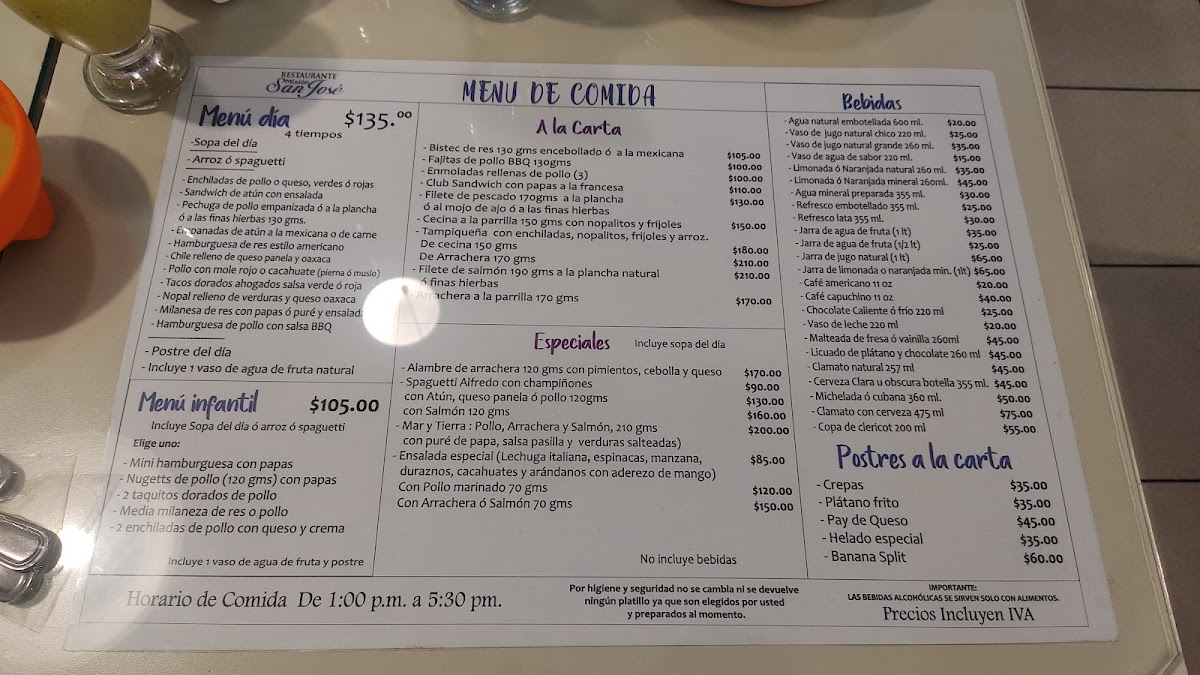 RESTAURANTE
Misión
San José
MENU DE COMIDA
Menú día $135.00
4 tiempos
-Sopa del día
- Arroz ó spaguetti
- Enchiladas de pollo o queso, verdes ó rojas
- Sandwich de atún con ensalada
- Pechuga de pollo empanizada ó a la plancha
ó a las finas hierbas 130 gms.
- Empanadas de atún a la mexicana o de carne
- Hamburguesa de res estilo americano
- Chile relleno de queso panela y oaxaca
- Pollo con mole rojo o cacahuate (pierna ó muslo)
- Tacos dorados ahogados salsa verde ó roja
- Nopal relleno de verduras y queso oaxaca
- Milanesa de res con papas ó puré y ensalada
- Hamburguesa de pollo con salsa BBQ
- Postre del día
- Incluye 1 vaso de agua de fruta natural
Menú infantil $105.00
Incluye Sopa del día ó arroz ó spaguetti
Elige uno:
- Mini hamburguesa con papas
- Nugetts de pollo (120 gms) con papas
- 2 taquitos dorados de pollo
- Media milaneza de res o pollo
- 2 enchiladas de pollo con queso y crema
Incluye 1 vaso de agua de fruta y postre
A la Carta
- Bistec de res 130 gms encebollado ó a la mexicana $105.00
- Fajitas de pollo BBQ 130gms $100.00
- Enmoladas rellenas de pollo (3) $100.00
- Club Sandwich con papas a la francesa $110.00
- Filete de pescado 170gms a la plancha $130.00
ó al mojo de ajo ó a las finas hierbas
- Cecina a la parrilla 150 gms con nopalitos y frijoles $150.00
- Tampiqueña con enchiladas, nopalitos, frijoles y arroz.
De cecina 150 gms $180.00
De Arrachera 170 gms $210.00
- Filete de salmón 190 gms a la plancha natural $210.00
ó finas hierbas
- Arrachera a la parrilla 170 gms $170.00
Especiales Incluye sopa del día
- Alambre de arrachera 120 gms con pimientos, cebolla y queso $170.00
- Spaguetti Alfredo con champiñones $90.00
con Atún, queso panela ó pollo 120gms $130.00
con Salmón 120 gms $160.00
- Mar y Tierra : Pollo, Arrachera y Salmón, 210 gms $200.00
con puré de papa, salsa pasilla y verduras salteadas)
- Ensalada especial (Lechuga italiana, espinacas, manzana, $85.00
duraznos, cacahuates y arándanos con aderezo de mango)
Con Pollo marinado 70 gms $120.00
Con Arrachera ó Salmón 70 gms $150.00
No incluye bebidas
Bebidas
- Agua natural embotellada 600 ml. $20.00
- Vaso de jugo natural chico 220 ml. $25.00
- Vaso de jugo natural grande 260 ml. $35.00
- Vaso de agua de sabor 220 ml. $15.00
- Limonada ó Naranjada natural 260 ml. $35.00
- Limonada ó Naranjada mineral 260ml. $45.00
- Agua mineral preparada 355 ml. $30.00
- Refresco embotellado 355 ml. $25.00
- Refresco lata 355 ml. $30.00
- Jarra de agua de fruta (1 lt) $35.00
- Jarra de agua de fruta (1/2 lt) $25.00
- Jarra de jugo natural (1 lt) $65.00
- Jarra de limonada o naranjada min. (1lt) $65.00
- Café americano 11 oz $20.00
- Café capuchino 11 oz $40.00
- Chocolate Caliente ó frío 220 ml $25.00
- Vaso de leche 220 ml $20.00
- Malteada de fresa ó vainilla 260ml $45.00
- Licuado de plátano y chocolate 260 ml $45.00
- Clamato natural 257 ml $45.00
- Cerveza Clara u obscura botella 355 ml. $45.00
- Michelada ó cubana 360 ml. $50.00
- Clamato con cerveza 475 ml $75.00
- Copa de clericot 200 ml $55.00
Postres a la carta
- Crepas $35.00
- Plátano frito $35.00
- Pay de Queso $45.00
- Helado especial $35.00
- Banana Split $60.00
Horario de Comida De 1:00 p.m. a 5:30 pm.
Por higiene y seguridad no se cambia ni se devuelve
ningún platillo ya que son elegidos por usted
y preparados al momento.
IMPORTANTE:
LAS BEBIDAS ALCOHÓLICAS SE SIRVEN SOLO CON ALIMENTOS.
Precios Incluyen IVA